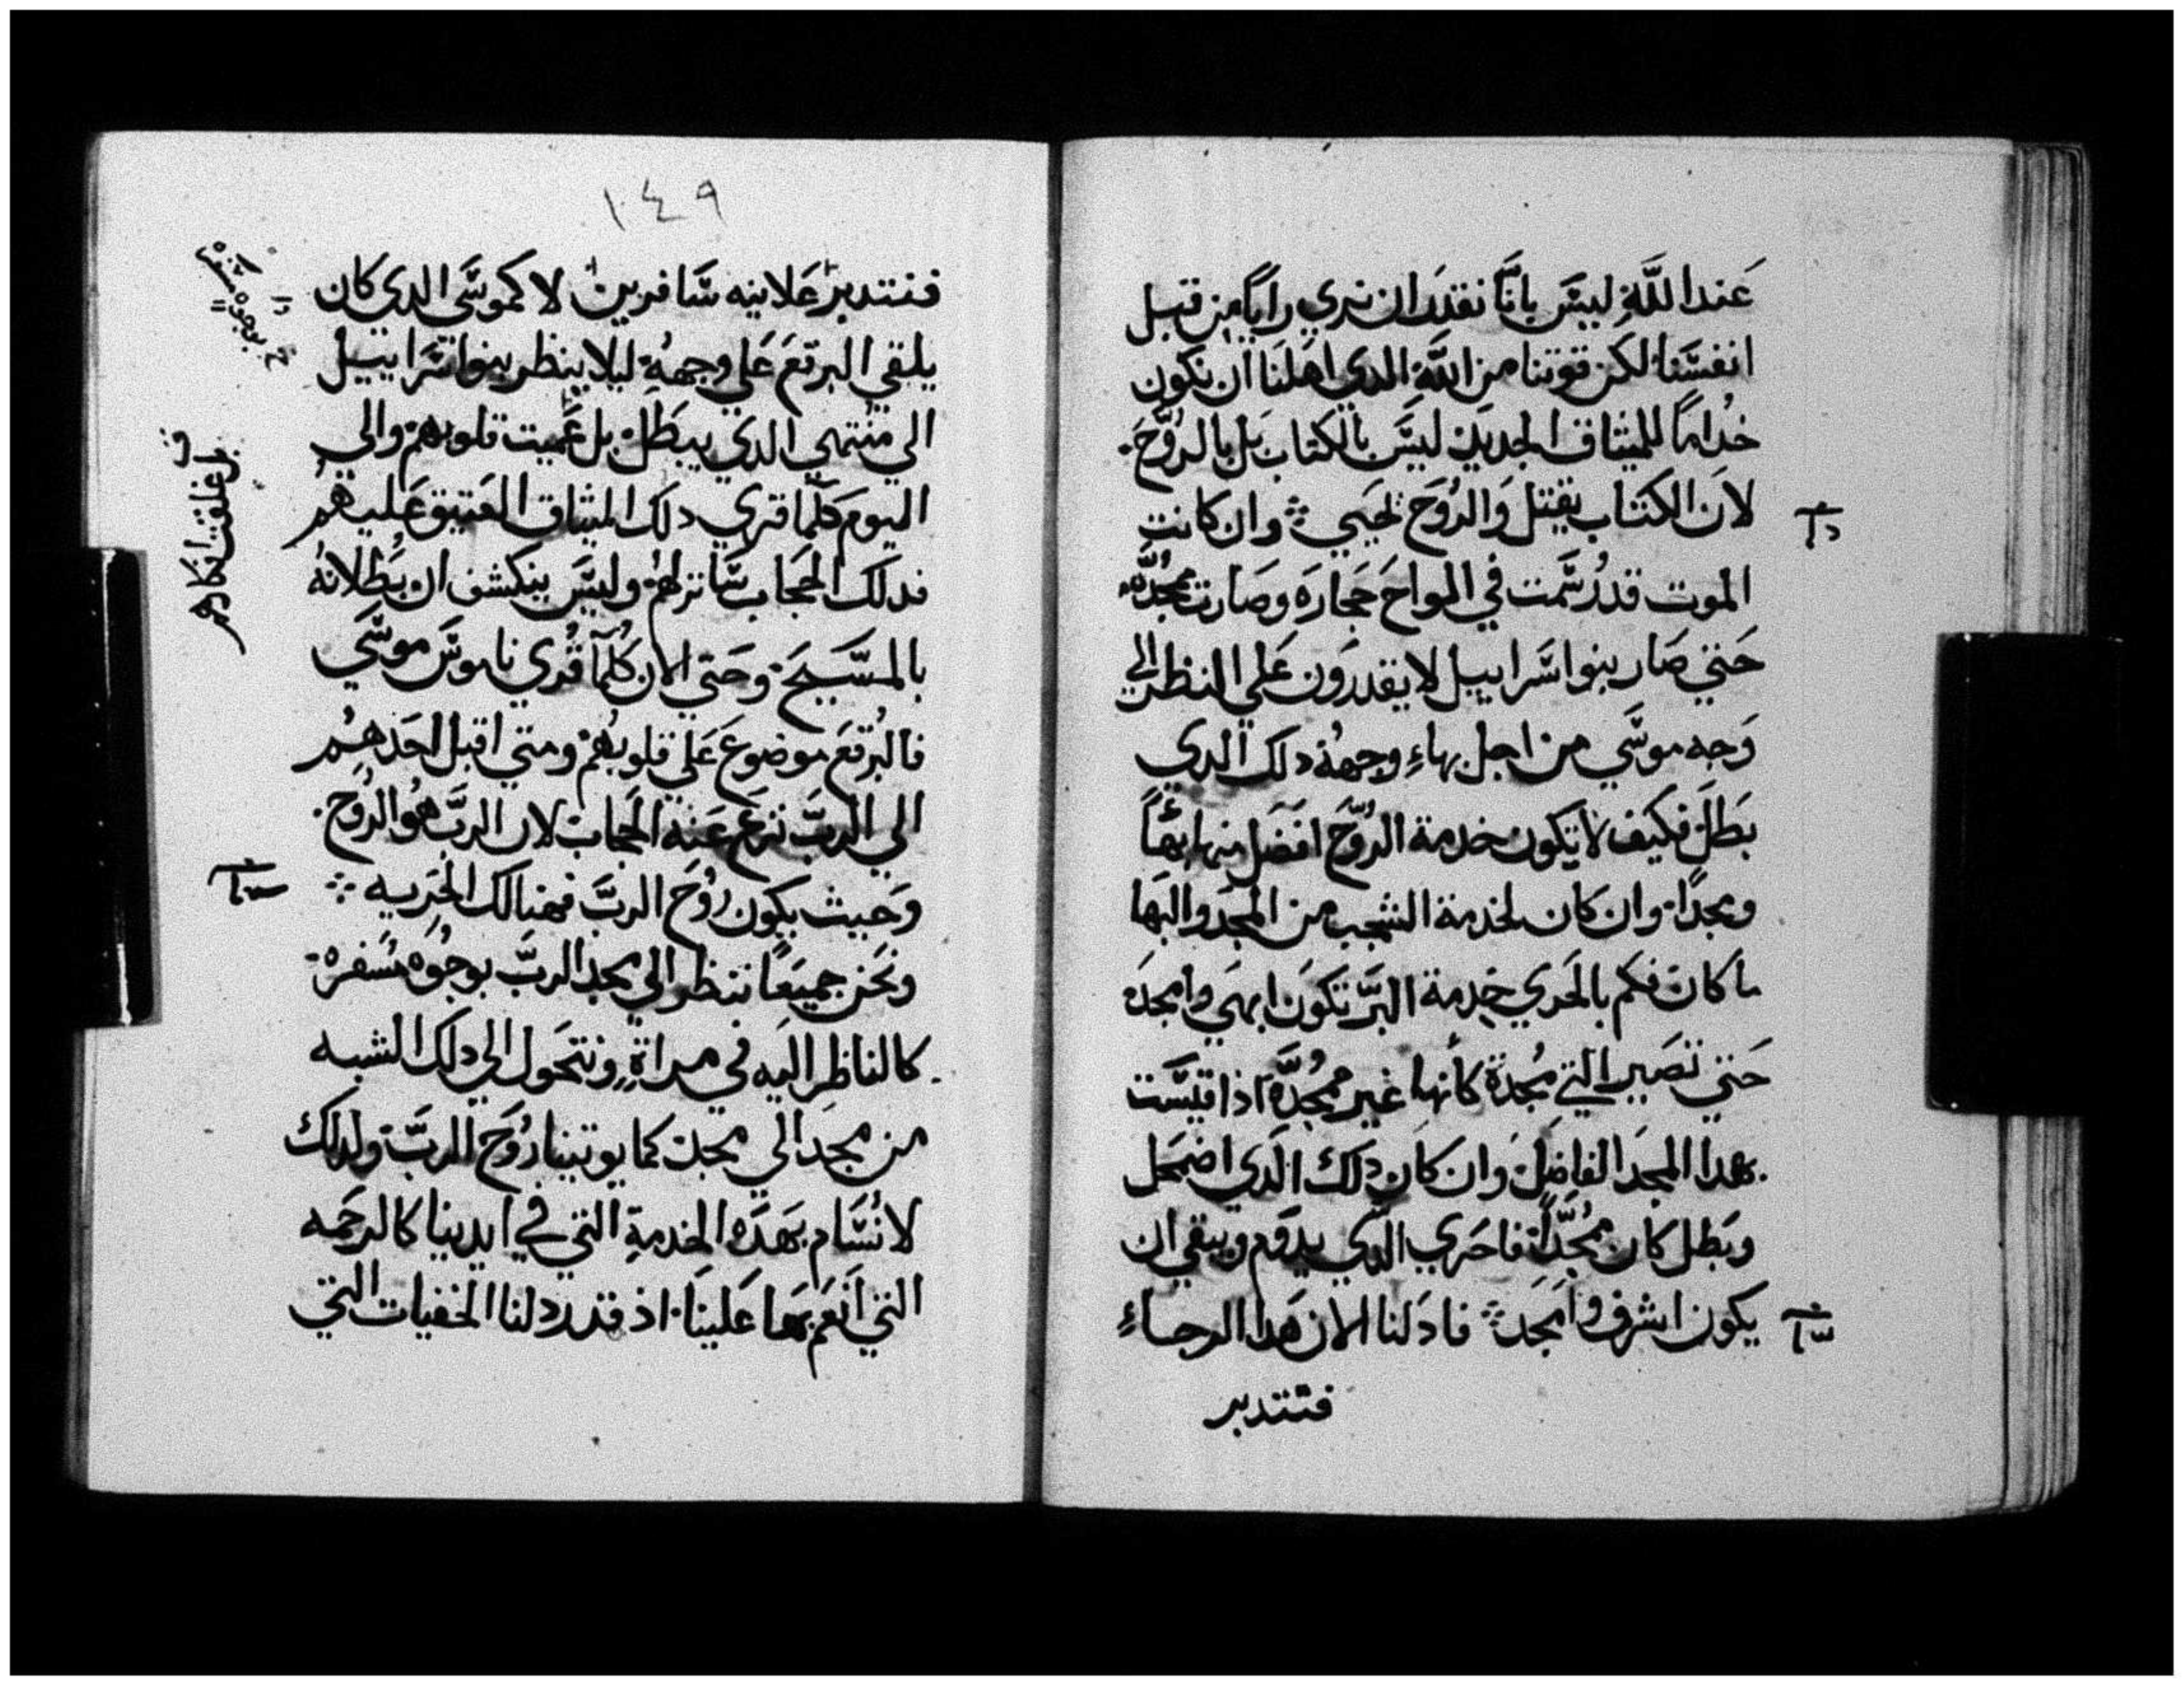 عند الله ليس بانا نقدر ان نري رايًا من قبل
انفسنا لكن قوتنا من الله الدي اهلنا ان نكون
خدامًا للميثاق الجديد ليس بالكتاب بل بالروح
لان الكتاب يقتل والروح تحيي وان كانت
الموت قد رسمت في الواح حجاره وصارت بمجده
حتي صار بنوا سراييل لا يقدرون علي النظر الي
وجه موسي من اجل بهاءِ وجهه دلك الدي
بطل فكيف لا تكون خدمة الروح افضل منها بهًا
ومجدًا وان كان لخدمة الشجب من المجد والبها
ما كان فكم بالحري خدمة البر تكون ابهي وامجد
حتي تصير التي مجدة كأنها غير ممجده اذا قيست
بهدا المجد الفاضل وان كان دلك الدي اضمحل
وبطل كان مجدًا فاحري الدي يدوم ويبقي ان
يكون اشرف وامجد فاد لنا الان هدا الرجاءِ
فتتدبر
١٤٩
فنتدبر علانيه سافرين لا كموسي الدي كان
يلقي البرقع علي وجهه ليلا ينظر بنوا سراييل
الي منتهي الدي يبطل بل عميت قلوبهم والي
اليوم كلما قري دلك الميثاق العتيق عليهم
فدلك الحجاب ساتر لهم وليس ينكشف ان بطلانه
بالمسيح وحتي الان كلما قري ناموس موسي
فالبرقع موضوع علي قلوبهم ومتي اقبل احدهم
الي الرب نزع عنه الحجاب لان الرب هو الروح
وحيث يكون روح الرب فهنالك الحريه
ونحن جميعًا ننظر الي مجد الرب بوجوه مسفره
كالناظر اليه في مراةٍ ونتحول الي دلك الشبه
من مجد الي مجد كما يوتينا روح الرب ولدلك
لا نسام بهده الخدمة التي في ايدينا كالرحمه
التي انعم بها علينا اذ قد رددلنا الخفيات التي
بل غلظت افكارهم